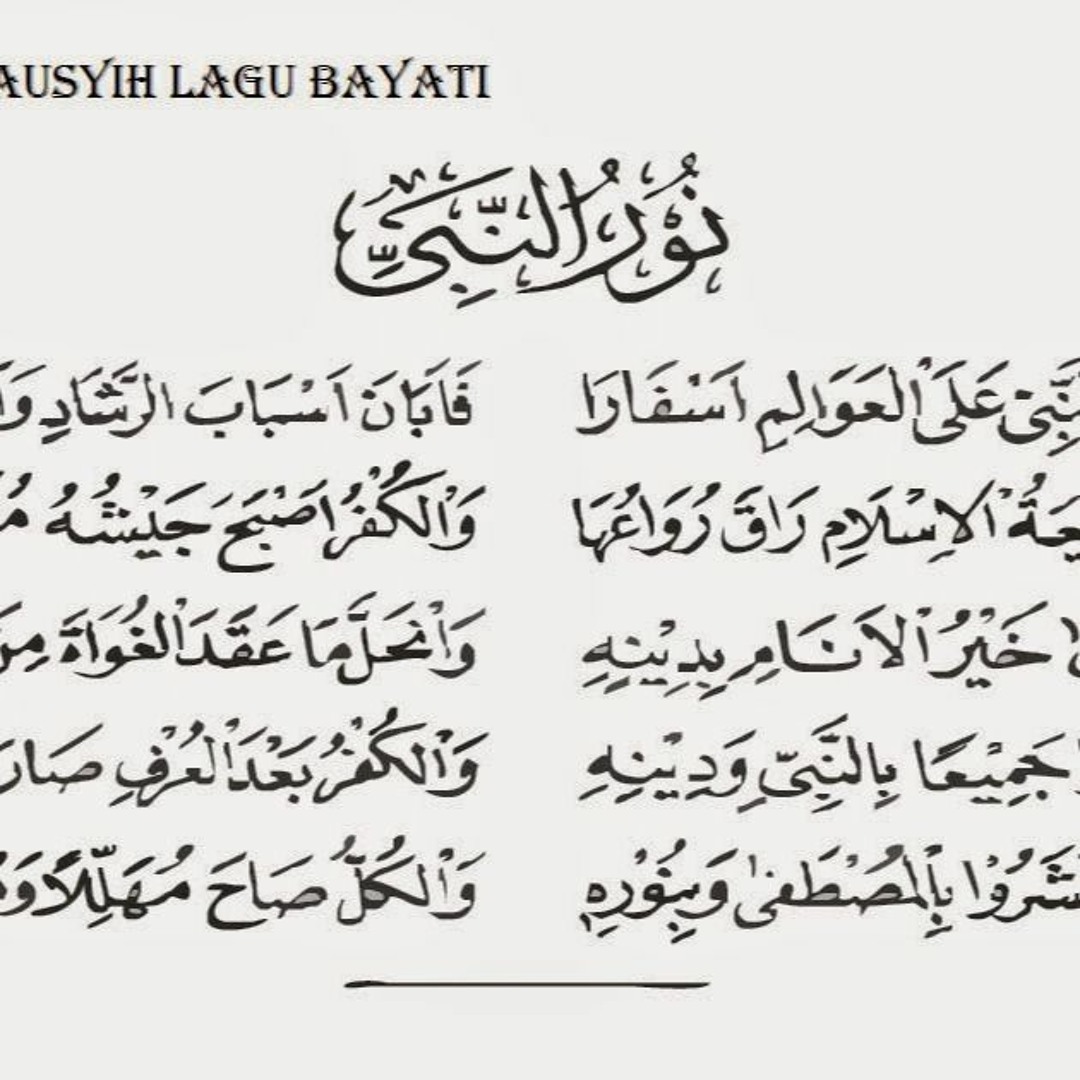 AUSYIH LAGU BAYATI
نُوْرُ النَّبِيِّ
عَلَى الْعَوَالِمِ اَسْفَارَا فَاَبَانَ اَسْبَابَ الرَّشَادِ
الْاِسْلَامِ رَاقَ رُوَاعُهَا وَالْكُفْرُ اَصْبَحَ جَيْشُهُ
خَيْرُ الْاَنَامِ بِدِيْنِهِ وَانْحَلَّ مَا عَقَدَ الْغُوَاةَ
جَمِيْعًا بِالنَّبِيِّ وَدِيْنِهِ وَالْكُفْرُ بَعْدَ الْعُرْفِ
بِالْمُصْطَفٰى وَبِنُوْرِهِ وَالْكُلُّ صَاحَ مُهَلِّلًا